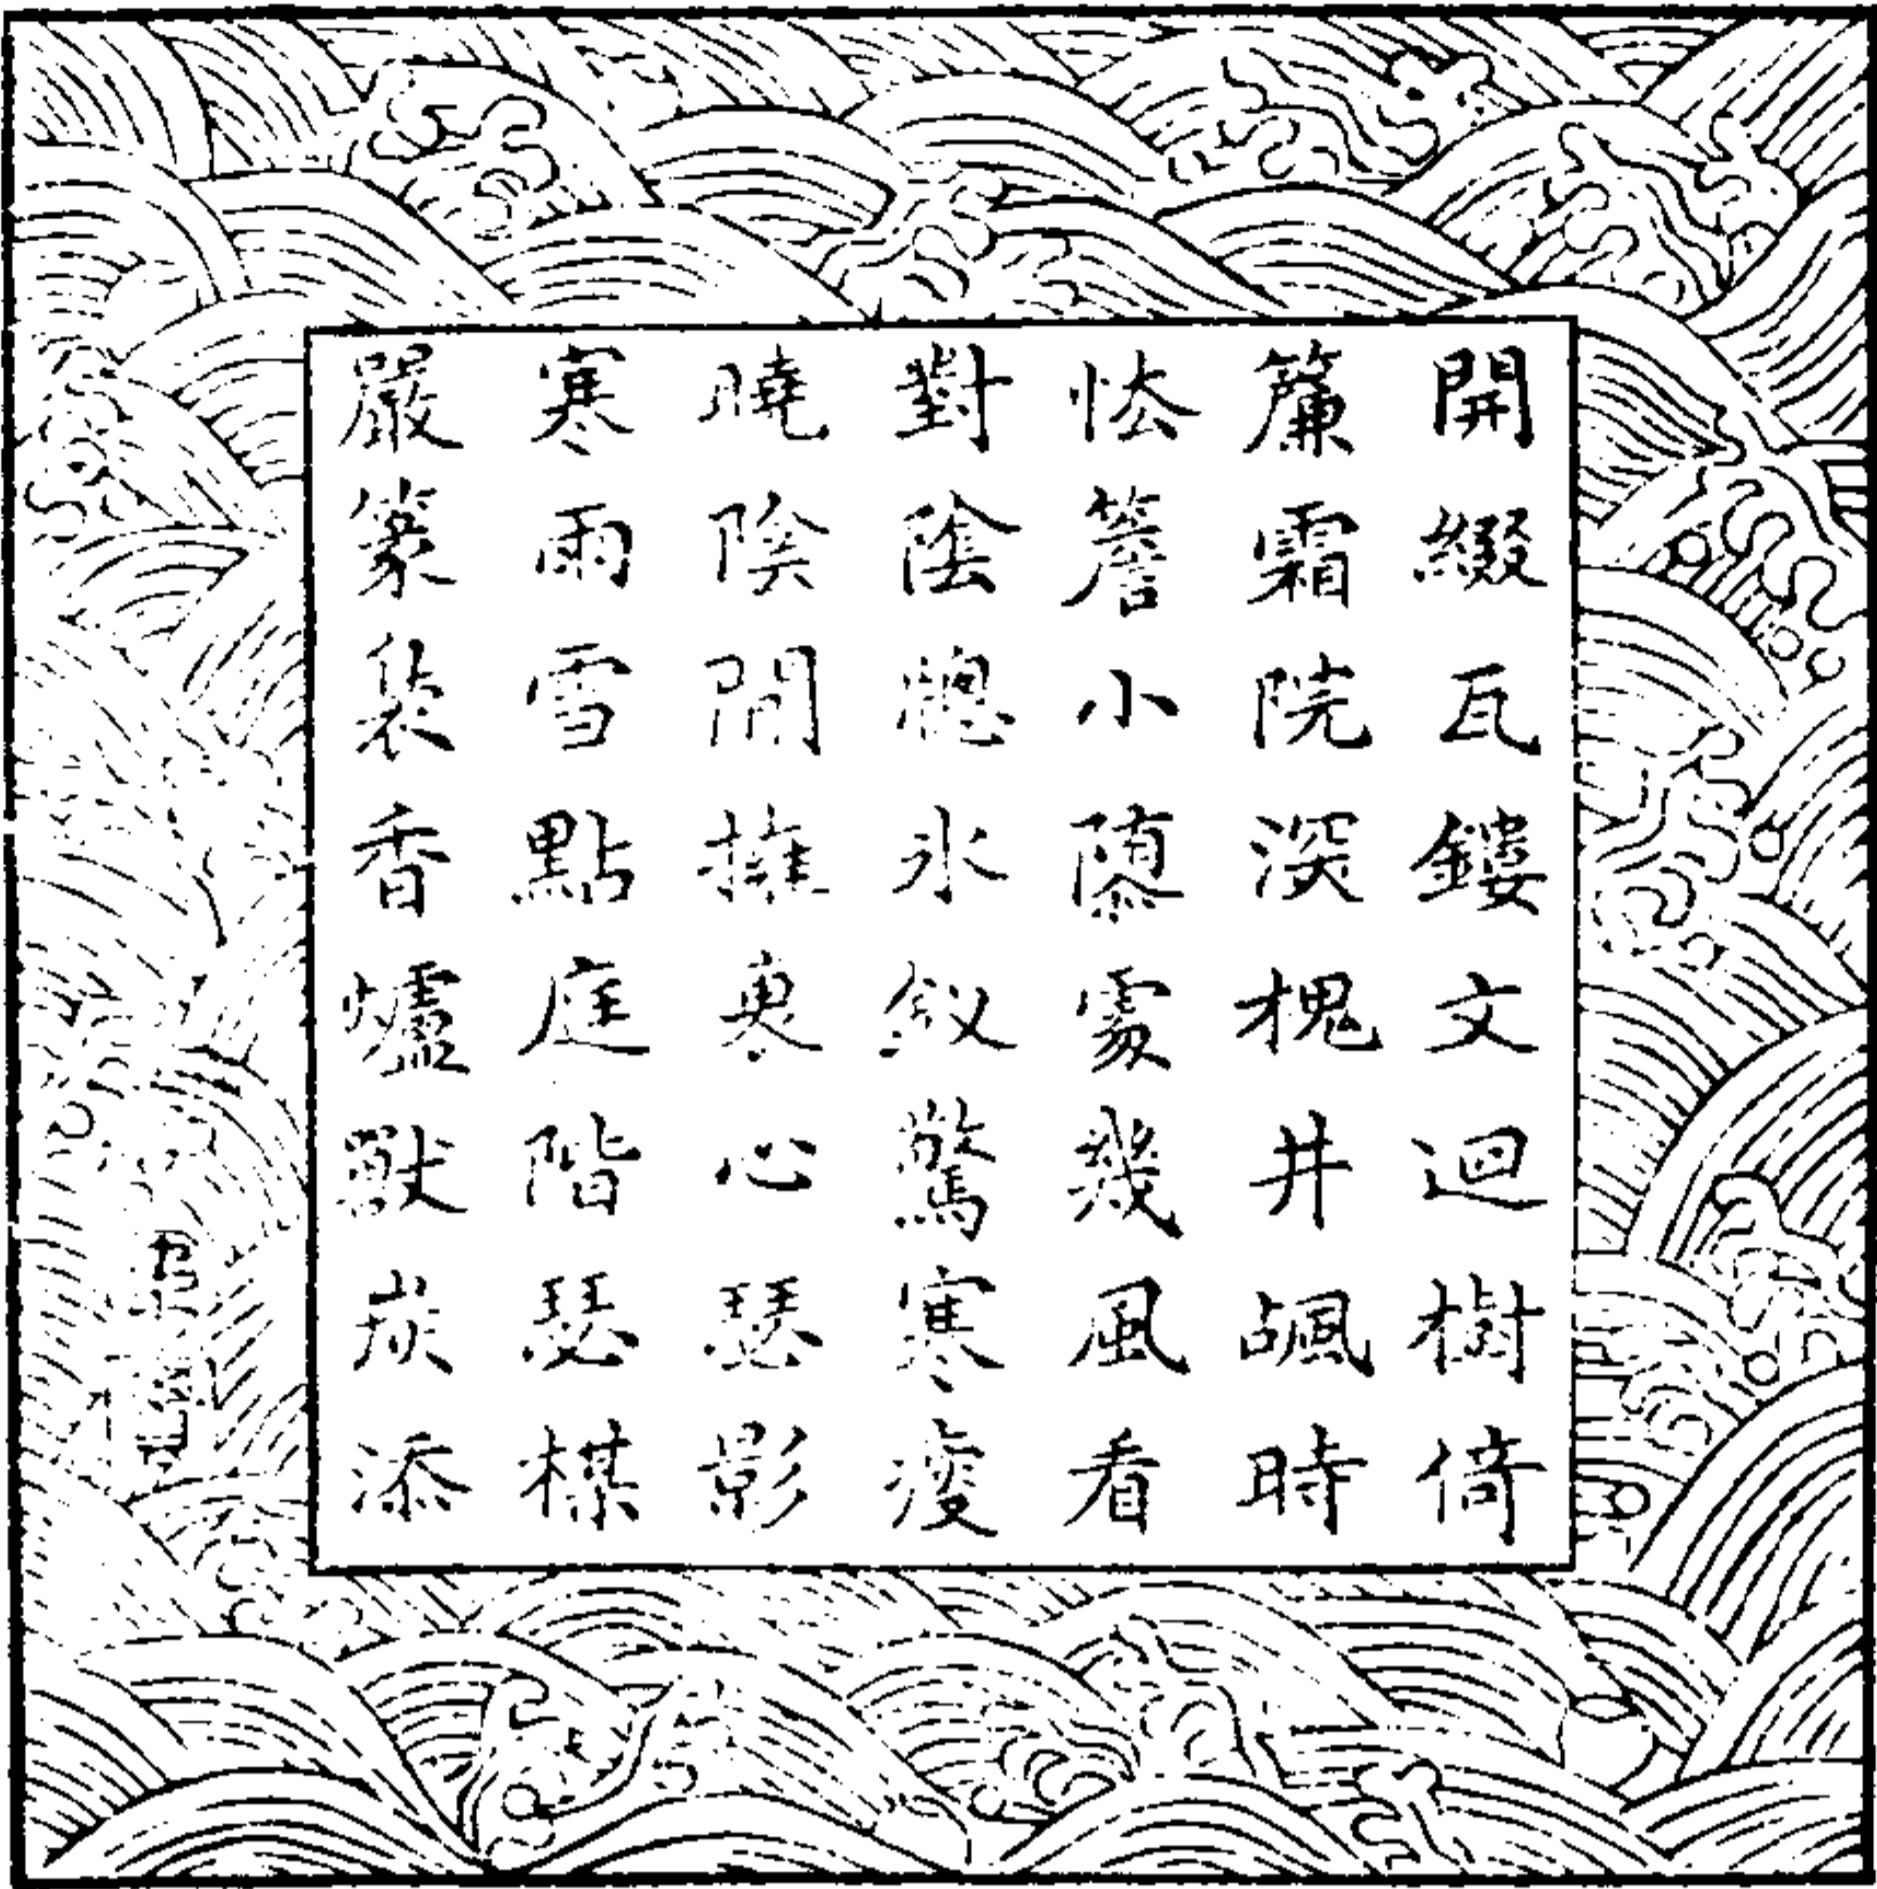 開綴瓦鏤文迴樹倚
簾霜院深槐井颯時
怯簷小處幾風看
對陰牕氷釵驚寒瘦
曉陰閒擁寒心瑟影
寒雨雪點庭階瑟棋
嚴篆香爐獸炭添